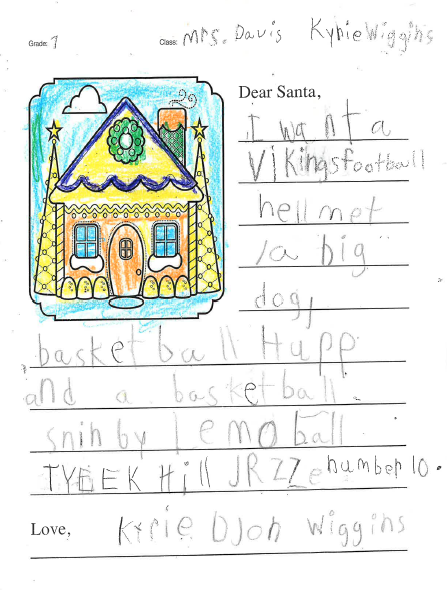 Grade: 1 Class: Mrs. Davis Kyrie Wiggins
Dear Santa,
I want a
Vikings football
hellmet
, a big
dog,
basket ball Hupp
and a basketball.
snin by Lemo ball
TYEEK Hill JRZZe number 10.
Love, Kyrie Djon Wiggins